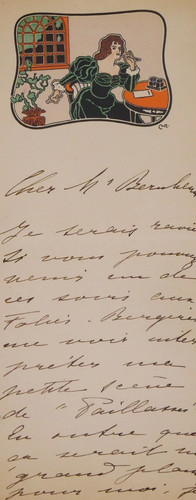 Cher Mr Bernheim
Je serais ravie
si vous pouviez
venir un de
ces soirs aux
Folies-Bergère
me voir inter
préter ma
petite scène
de "Paillasse"
En outre que
ça serait un
grand plaisir
pour moi,